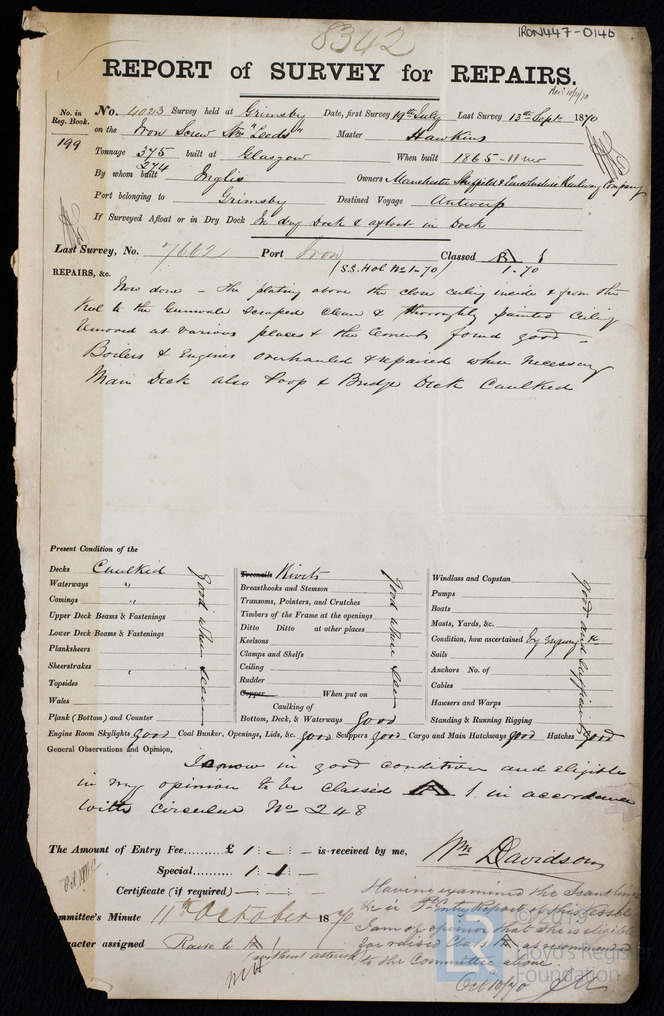 IRON447-0140
8342
REPORT of SURVEY for REPAIRS.
Rec: 10/10/70
No. in Reg. Book. No. 4023 Survey held at Grimsby Date, first Survey 19th July Last Survey 13th Sept 1870
199 on the Iron Screw Str "Leeds" Master Hawkins
Tonnage 375 274 built at Glasgow When built 1865 - 11 mo
By whom built Inglis Owners Manchester Sheffield & Lincolnshire Railway Company
Port belonging to Grimsby Destined Voyage Antwerp
If Surveyed Afloat or in Dry Dock In dry Dock & afloat in Dock
Last Survey, No. 7662 Port Iron Classed A 1
(S.S. Hol No 1-70) 1.70
REPAIRS, &c.
Now done - The plating above the close ceiling inside & from the
Keel to the Gunwale scraped clean & thoroughly painted Ceiling
removed at various places & the Cement found good -
Boilers & Engines overhauled & repaired where necessary
Main Deck also Poop & Bridge Deck Caulked
Present Condition of the
Decks Caulked
Waterways "
Comings "
Upper Deck Beams & Fastenings
Lower Deck Beams & Fastenings
Planksheers
Sheerstrakes
Topsides
Wales
Plank (Bottom) and Counter
Good where seen
Treenails Rivets
Breasthooks and Stemson
Transoms, Pointers, and Crutches
Timbers of the Frame at the openings
Ditto Ditto at other places
Keelsons
Clamps and Shelfs
Ceiling
Rudder
Copper When put on
Caulking of
Bottom, Deck, & Waterways Good
Good where seen
Windlass and Capstan
Pumps
Boats
Masts, Yards, &c.
Condition, how ascertained by enquiry &c
Sails
Anchors No. of
Cables
Hawsers and Warps
Standing & Running Rigging
good and sufficient
Engine Room Skylights good Coal Bunker, Openings, Lids, &c. good Scuppers good Cargo and Main Hatchways good Hatches good
General Observations and Opinion,
Is now in good condition and eligible
in my opinion to be classed A 1. in accordance
with circular No 248
The Amount of Entry Fee......... £ 1 : - : - is received by me,
Wm Davidson
Special......... 1 : 1 : -
Certificate (if required)
Committee's Minute 11th October 1870
Character assigned Raise to A 1
(without asterisk)
Having examined the Scantlings
&c in 1st Entry Report of this Vessel
I am of opinion that she is eligible
for raised Class A as recommended
to the Committee above.
Oct 10/70
© 2019
Lloyd's Register
Foundation
LR